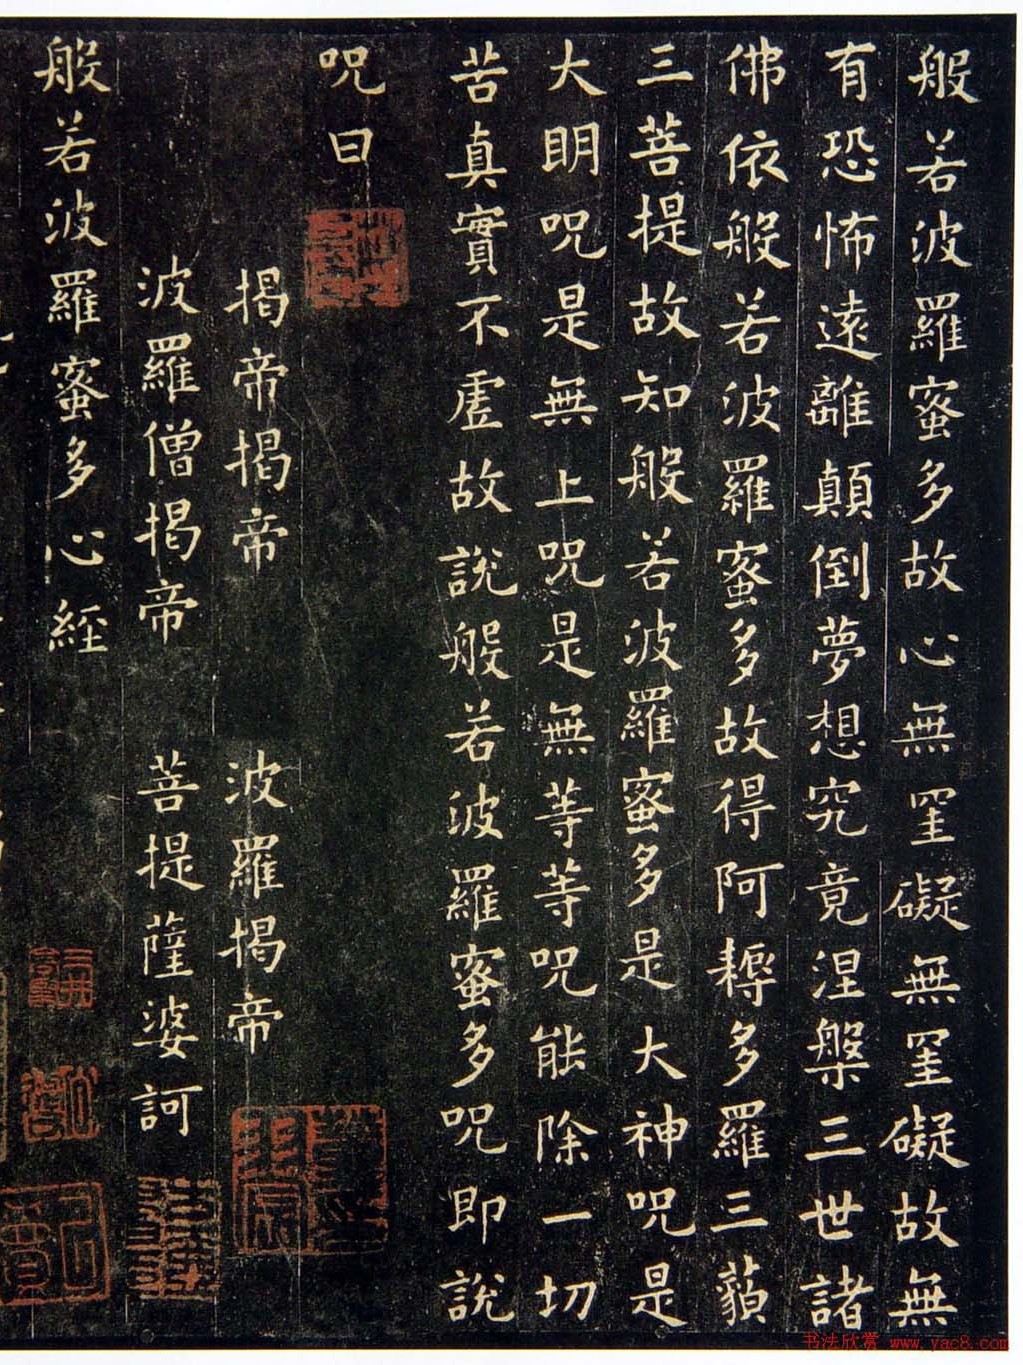 般若波羅蜜多故心無罣礙無罣礙故無
有恐怖遠離顛倒夢想究竟涅槃三世諸
佛依般若波羅蜜多故得阿耨多羅三藐
三菩提故知般若波羅蜜多是大神呪是
大明呪是無上呪是無等等呪能除一切
苦真實不虛故說般若波羅蜜多呪即說
呪曰
揭帝揭帝 波羅揭帝
波羅僧揭帝 菩提薩婆訶
般若波羅蜜多心經
书法欣赏 www.yac8.com